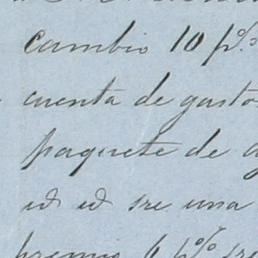 cambio 10 p%
cuenta de gastos
paquete de
id id sre una
premio 6 p% sre